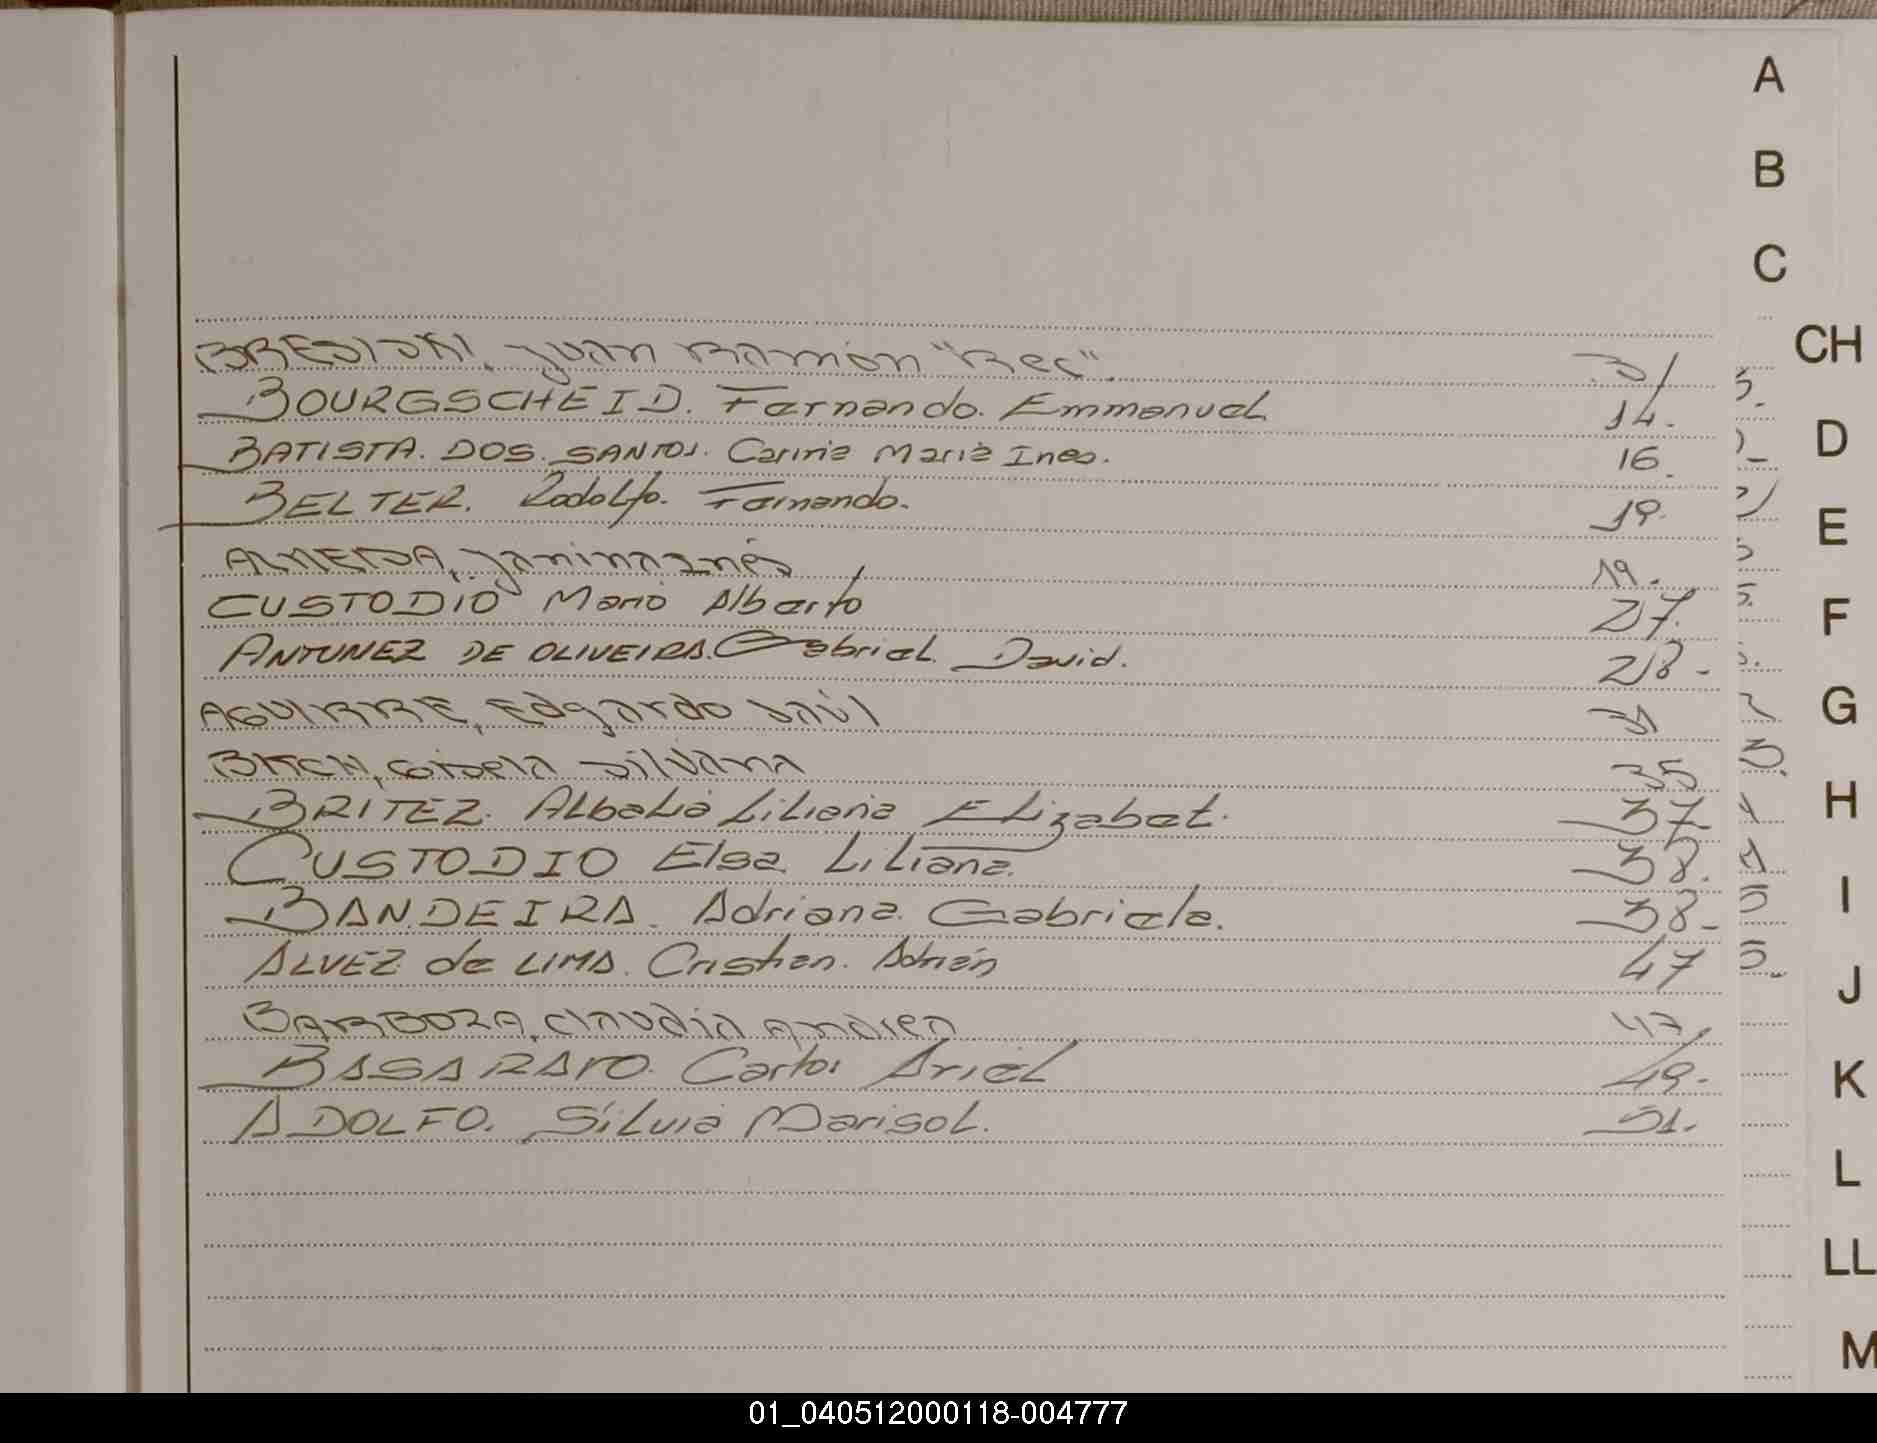 A
B
C
CH
D
E
F
G
H
I
J
K
L
LL
M
BRESISKI, Juan Ramón "Rec". 3
BOURGSCHEID. Fernando. Emmanuel 14.
BATISTA. DOS. SANTOS. Carina Maria Ines. 16.
BELTER. Rodolfo. Fernando. 19.
ALMEIDA, Janina Inés 19.
CUSTODIO Mario Alberto 27.
ANTUNEZ DE OLIVEIRA. Gabriel. David. 28-
AGUIRRE, Edgardo Saúl 31
BITCH, Gisela Silvana 35
BRITEZ. Albalia Liliana Elizabet. 37
CUSTODIO Elsa Liliana. 38.
BANDEIRA. Adriana. Gabriela. 38-
ALVEZ de LIMA. Cristian. Adrián 47
BARBOZA, Claudia Andrea 47
BASARAVO. Carlos Ariel 49.
ADOLFO. Silvia Marisol. 51.
01_040512000118-004777